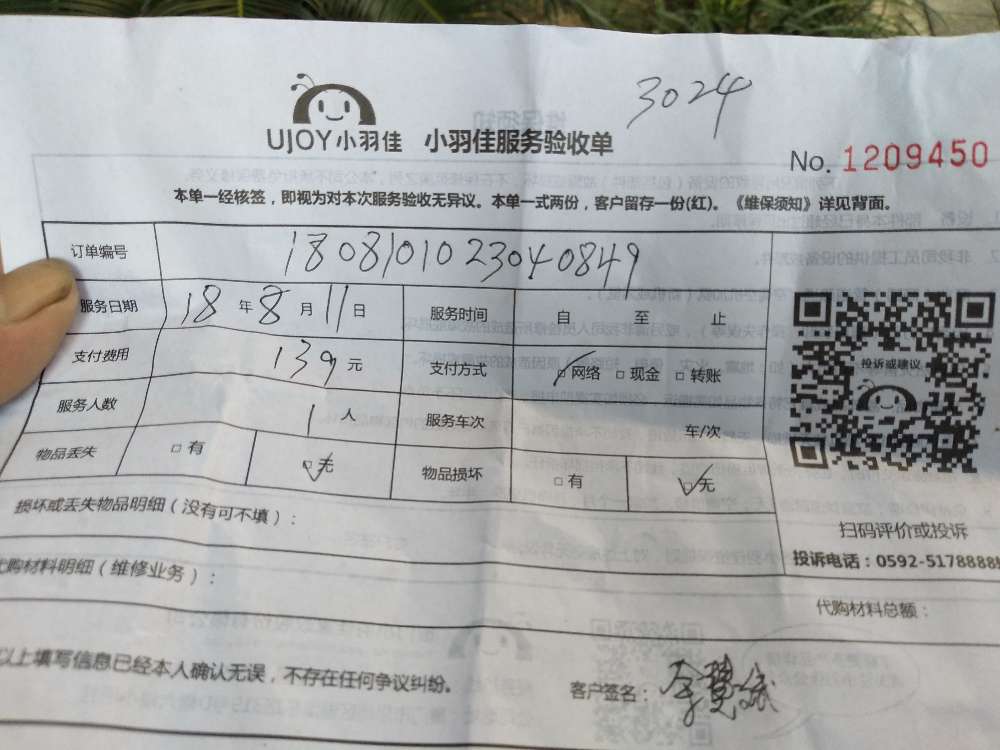 3024
UJOY小羽佳 小羽佳服务验收单
No. 1209450
本单一经核签，即视为对本次服务验收无异议。本单一式两份，客户留存一份(红)。《维保须知》详见背面。
订单编号 1808101023040849
服务日期 18 年 8 月 11 日 服务时间 自 至 止
支付费用 139 元 支付方式 网络 现金 转账
服务人数 1 人 服务车次 车/次
物品丢失 有 无 物品损坏 有 无
投诉或建议
损坏或丢失物品明细（没有可不填）：
扫码评价或投诉
投诉电话：0592-5178888
代购材料明细（维修业务）：
代购材料总额：
以上填写信息已经本人确认无误，不存在任何争议纠纷。
客户签名：